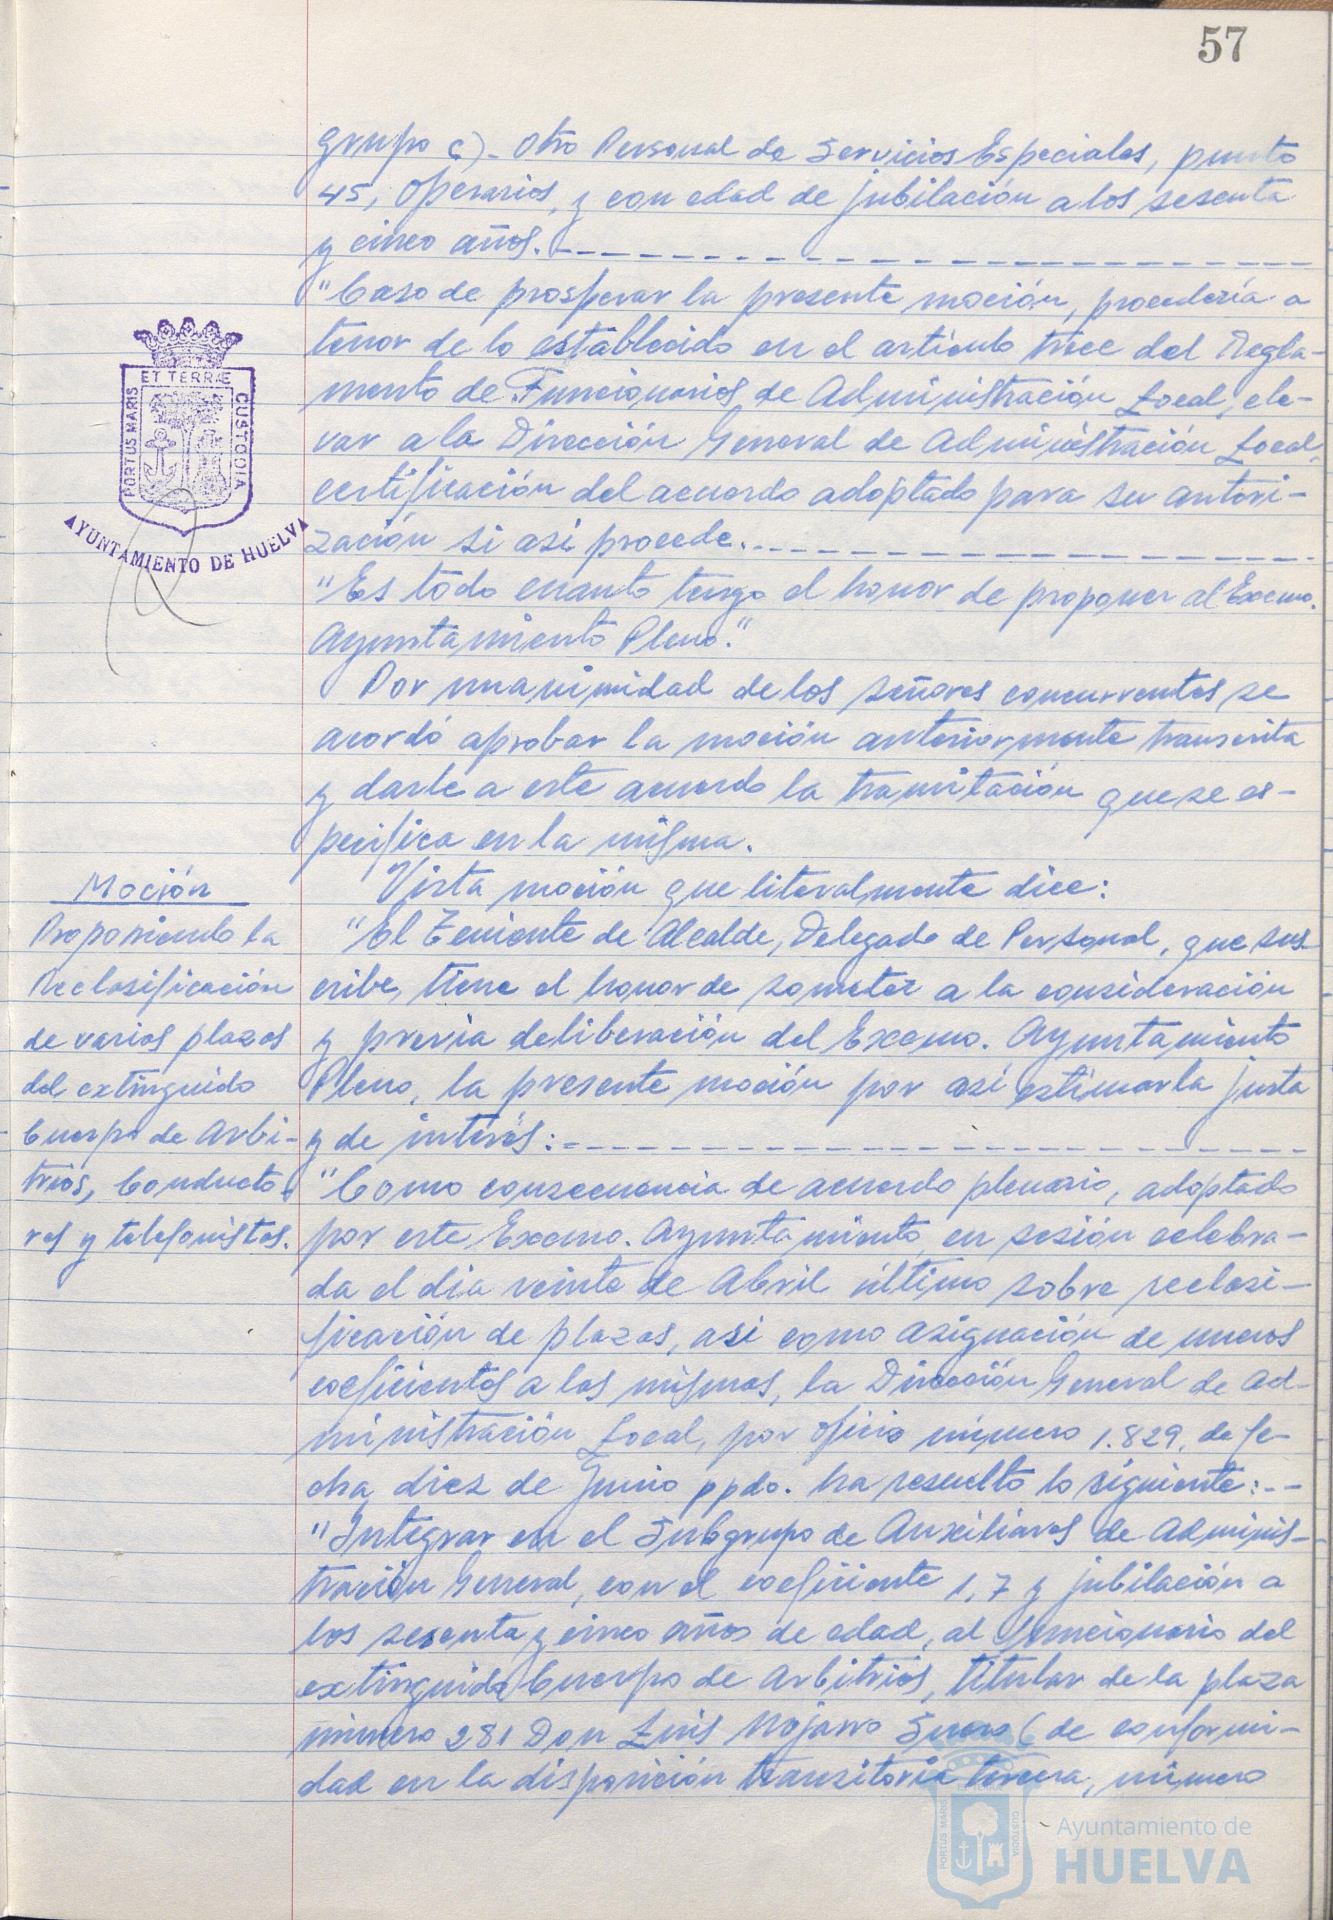 57
grupo c).- Otro Personal de Servicios Especiales, punto
45, Operarios, y con edad de jubilación a los sesenta
y cinco años.
"Caso de prosperar la presente moción, procedería a
tenor de lo establecido en el artículo trece del Regla-
mento de Funcionarios de Administración Local, ele-
var a la Dirección General de Administración Local,
certificación del acuerdo adoptado para su autori-
zación si asi procede.
"Es todo cuanto tengo el honor de proponer al Excmo.
Ayuntamiento Pleno."
Por unanimidad de los señores concurrentes se
acordó aprobar la moción anteriormente transcrita
y darle a este acuerdo la tramitación que se es-
pecifica en la misma.
Vista moción que literalmente dice:
"El Teniente de Alcalde, Delegado de Personal, que sus-
cribe, tiene el honor de someter a la consideración
y previa deliberación del Excmo. Ayuntamiento
Pleno, la presente moción por asi estimarla justa
y de interés:
"Como consecuencia de acuerdo plenario, adoptado
por este Excmo. Ayuntamiento, en sesión celebra-
da el dia veinte de Abril último sobre reclasi-
ficación de plazas, asi como asignación de nuevos
coeficientes a las mismas, la Dirección General de Ad-
ministración Local, por oficio número 1.829, de fe-
cha diez de Junio ppdo. ha resuelto lo siguiente:--
"Integrar en el Subgrupo de Auxiliares de Adminis-
tración General, con el coeficiente 1,7 y jubilación a
los sesenta y cinco años de edad, al funcionario del
extinguido Cuerpo de Arbitrios, titular de la plaza
número 281 Don Luis Mojarro (de conformi-
dad en la disposición transitoria tercera, número
Moción
Proponiendo la
Reclasificación
de varias plazas
del extinguido
Cuerpo de Arbi-
trios, Conducto-
res y telefonistas.
PORTUS MARIS
ET TERRÆ
CUSTODIA
AYUNTAMIENTO DE HUELVA
PORTUS MARIS
CUSTODIA
Ayuntamiento de
HUELVA